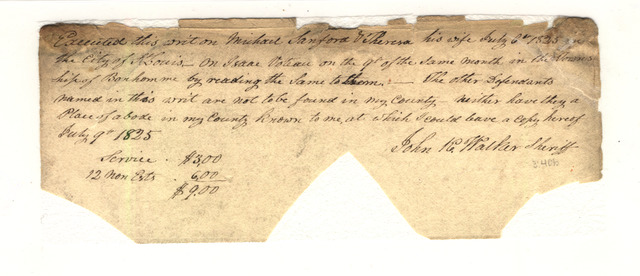 Executed this writ on Michael Sanford & Theresa his wife July 6th 1825 in
the City of St Louis - On Isaac Voteau on the 9th of the same month in the Towns
hip of Bonhomme by reading the Same to them. :— The other Defendants
named in this writ are not to be found in my County neither have they a
Place of abode in my County known to me, at which I could leave a copy hereof
July 9th 1825
John K. Walker Sheriff
Service . $3,00
12 Non Ests . 6,00
$9.00